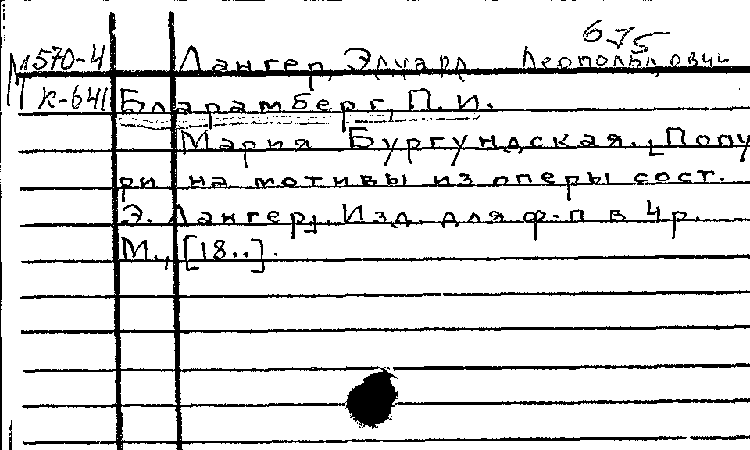 675
М 570-4 Лангер, Эдуард Леопольдович
К-641 Бларамберг, П. И.
Мария Бургундская. [Попу
ри на мотивы из оперы сост.
Э. Лангер]. Изд. для ф-п в 4 р.
М., [18..].